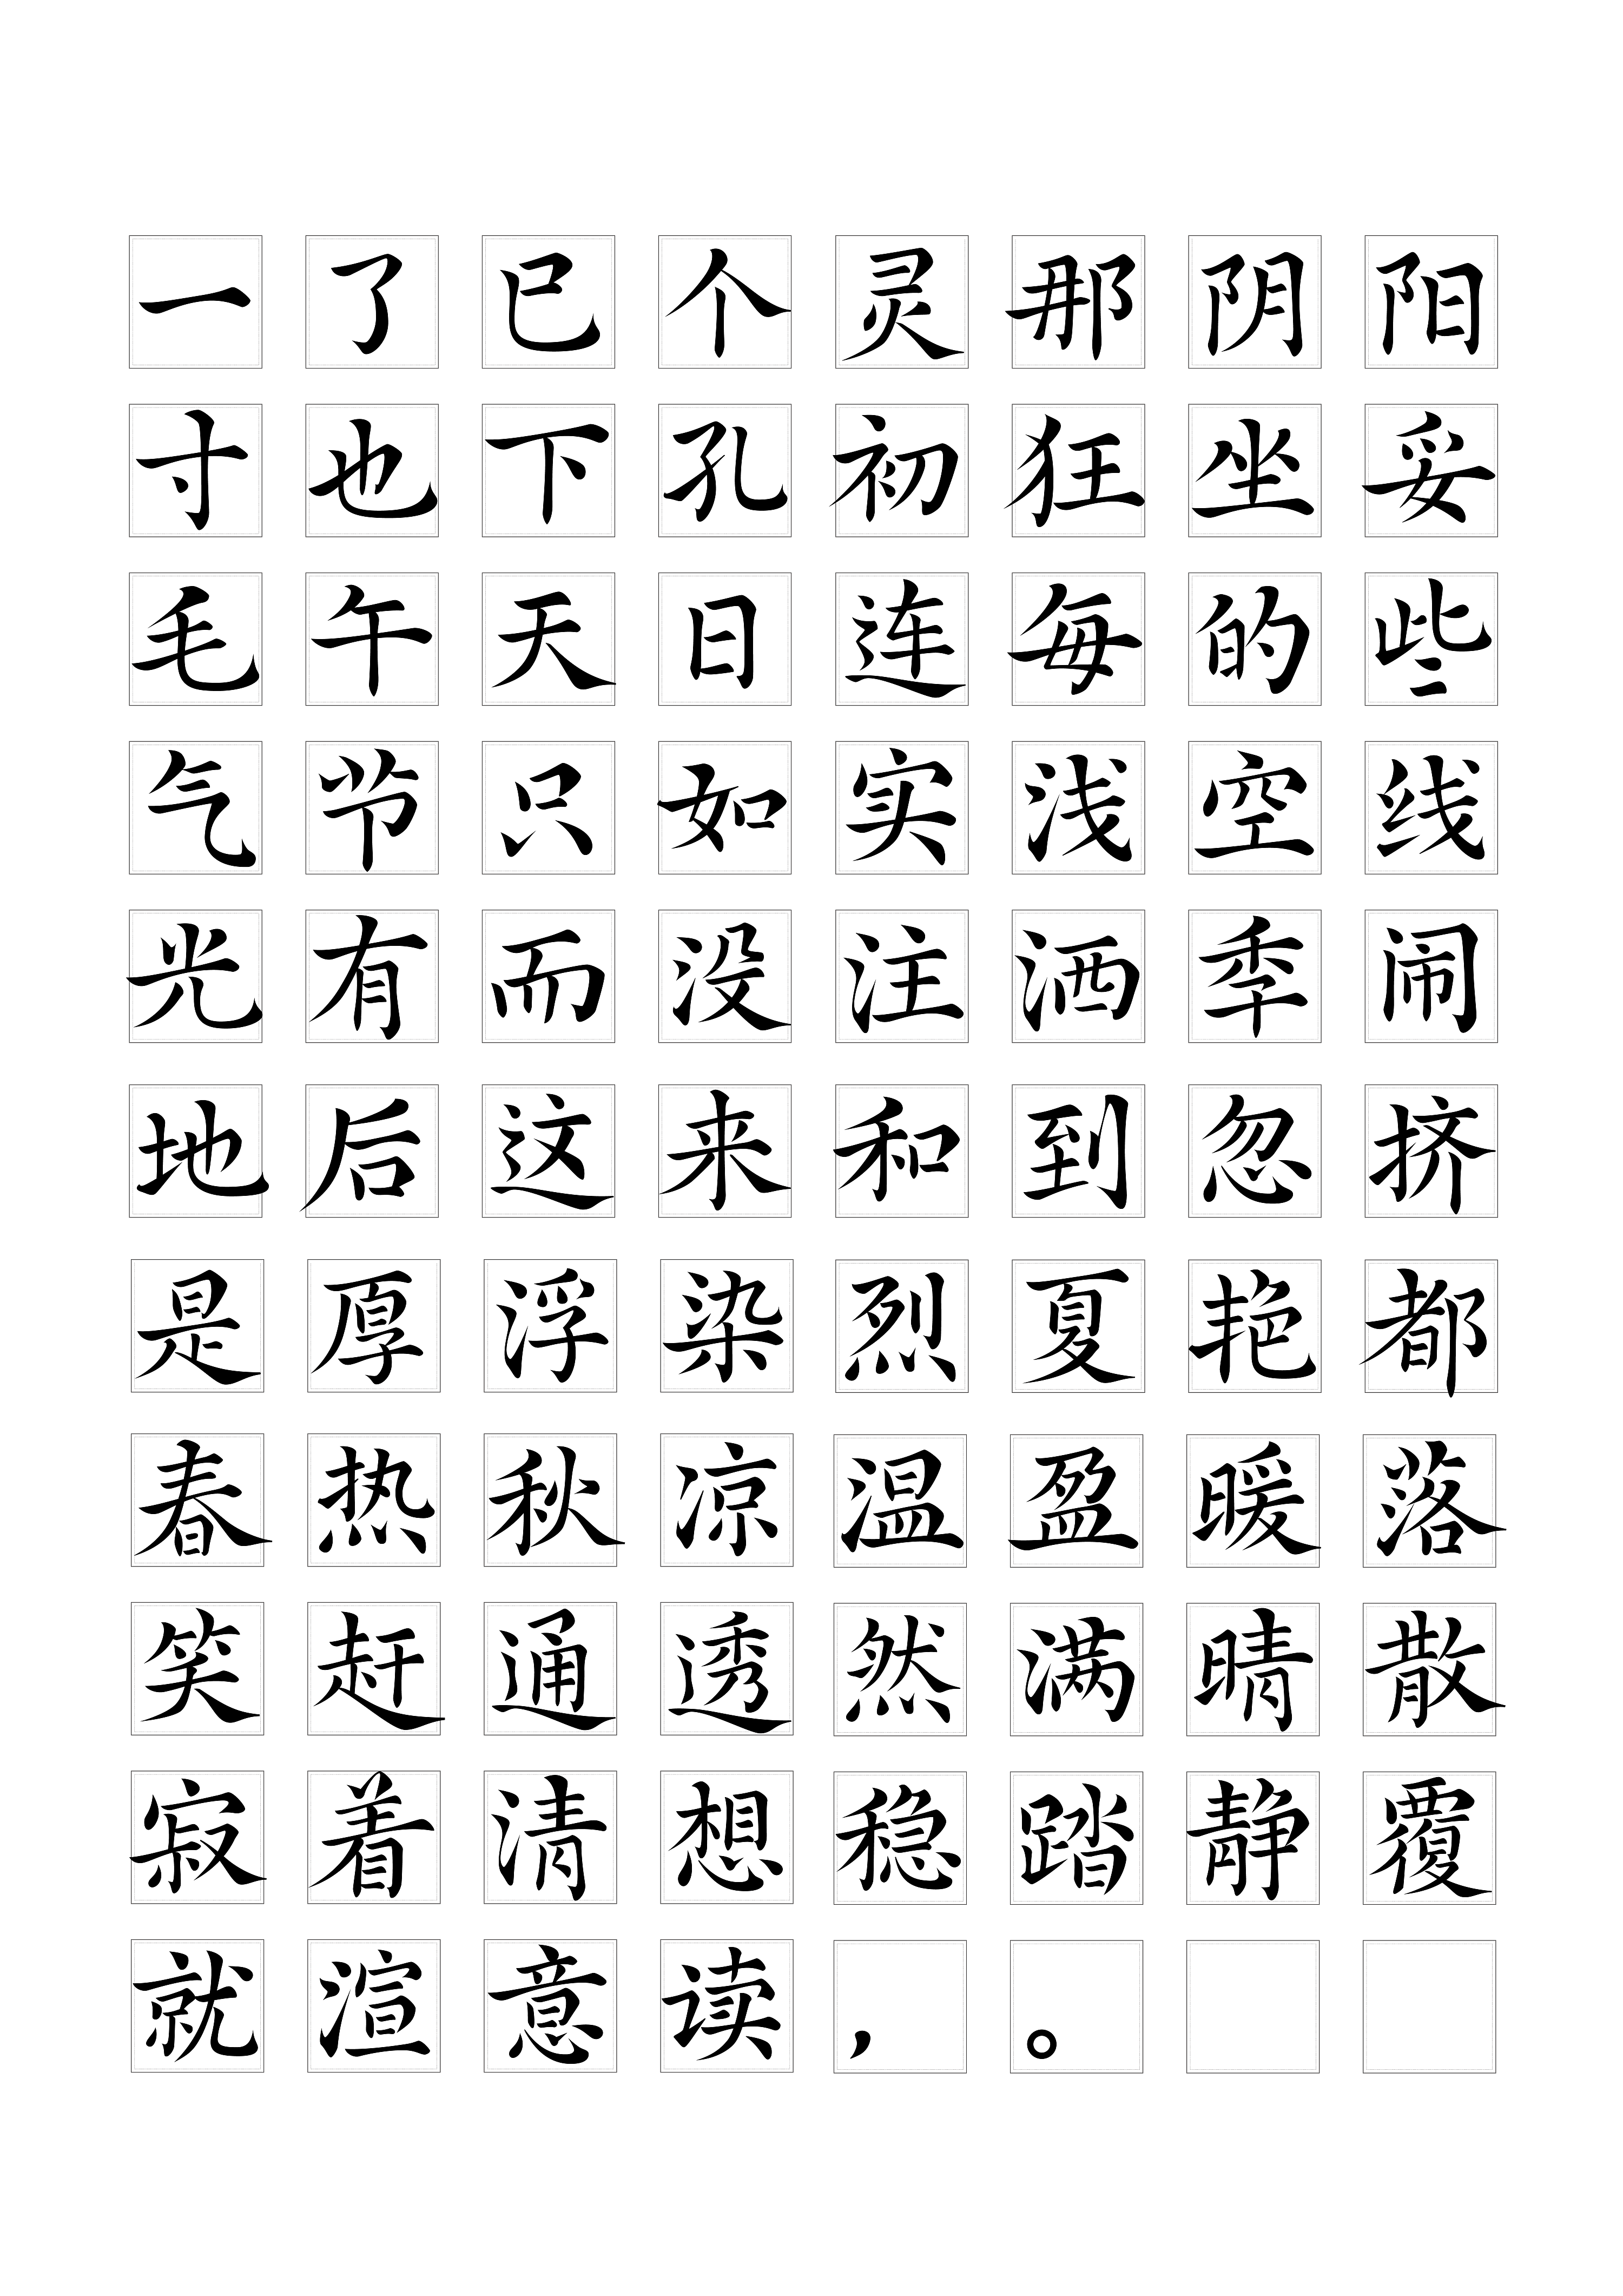 一了已个灵那阴阳
寸也下孔初狂坐妥
毛午天日连每的些
气节只如实浅空线
光有而没注洒季闹
地后这来和到忽挤
是厚浮染烈夏艳都
春热秋凉温盈暖落
笑赶通透然满晴散
寂着清想稳踏静覆
就渲意读，。